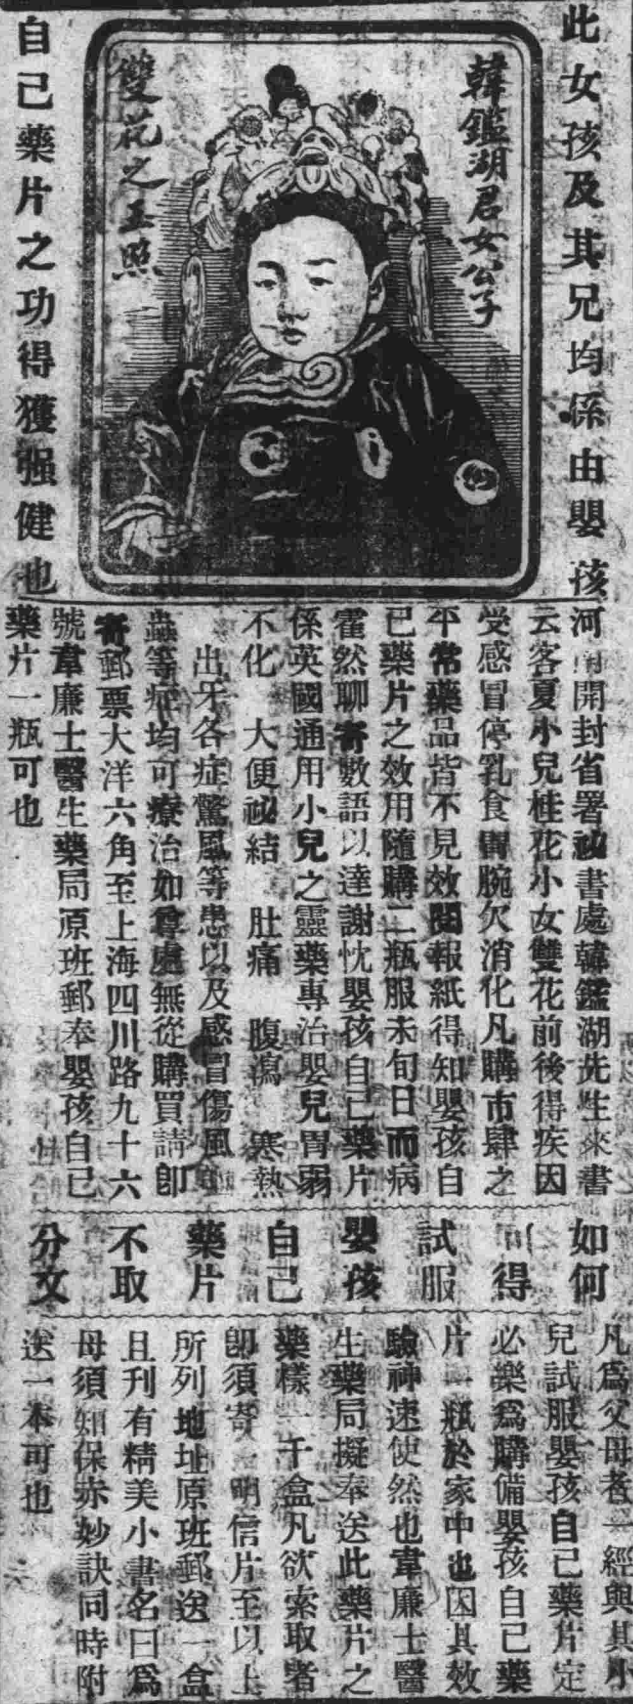 此女孩及其兄均係由嬰孩
自己藥片之功得獲强健也
韓鑑湖君女公子
雙花之玉照
河南開封省署祕書處韓鑑湖先生來書
云客夏小兒桂花小女雙花前後得疾因
受感冒停乳食胃腕欠消化凡購市肆之
平常藥品皆不見效閱報紙得知嬰孩自
己藥片之效用隨購二瓶服未旬日而病
霍然聊寄數語以達謝忱嬰孩自己藥片
係英國通用小兒之靈藥專治嬰兒胃弱
不化 大便祕結 肚痛 腹瀉 寒熱
出牙各症驚風等患以及感冒傷風
蟲等症均可療治如尊處無從購買請卽
寄郵票大洋六角至上海四川路九十六
號韋廉士醫生藥局原班郵奉嬰孩自己
藥片一瓶可也
如何
可得
試服
嬰孩
自己
藥片
不取
分文
凡爲父母者一經與其小
兒試服嬰孩自己藥片定
必樂爲購備嬰孩自己藥
片一瓶於家中也因其效
驗神速使然也韋廉士醫
生藥局擬奉送此藥片之
藥樣一千盒凡欲索取者
卽須寄一明信片至以上
所列地址原班郵送一盒
且刊有精美小書名曰爲
母須知保赤妙訣同時附
送一本可也